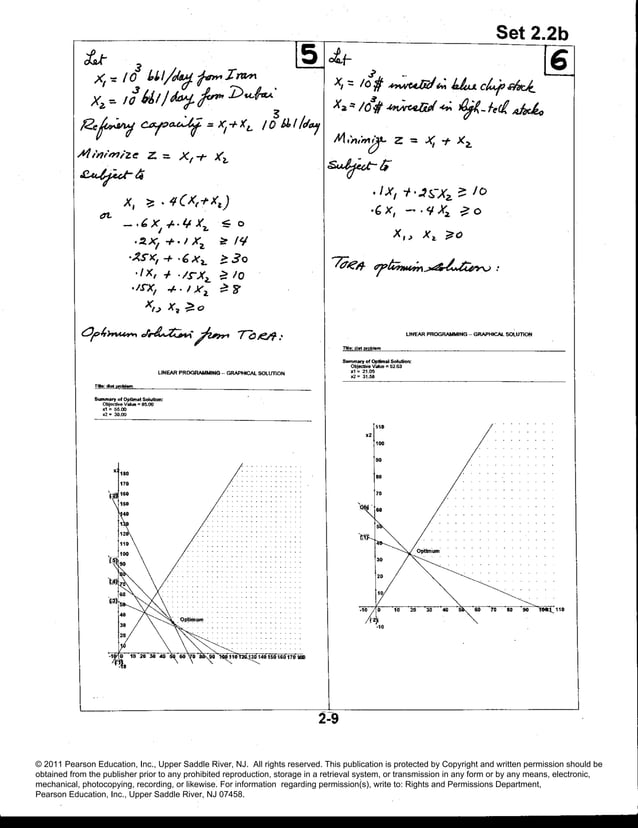 Set 2.2b
5
Let
x₁ = 10³ bbl/day from Iran
x₂ = 10³ bbl/day from Dubai
Refinery capacity = x₁+x₂ 10³ bbl/day
Minimize z = x₁ + x₂
subject to
x₁ ≥ .4(x₁+x₂)
or
-.6x₁+.4x₂ ≤ 0
.2x₁ + .1x₂ ≥ 14
.25x₁ + .6x₂ ≥ 30
.1x₁ + .15x₂ ≥ 10
.15x₁ + .1x₂ ≥ 8
x₁, x₂ ≥ 0
Optimum solution from TORA:
LINEAR PROGRAMMING -- GRAPHICAL SOLUTION
Title: diet problem
Summary of Optimal Solution:
Objective Value = 85.00
x1 = 55.00
x2 = 30.00
x2
180
170
160
150
140
120
110
100
90
60
40
30
20
10
Optimum
6
Let
x₁ = 10³ $ invested in blue chip stock
x₂ = 10³ $ invested in high-tech stocks
Minimize z = x₁ + x₂
subject to
.1x₁ + .25x₂ ≥ 10
.6x₁ - .4x₂ ≥ 0
x₁, x₂ ≥ 0
TORA optimum solution:
LINEAR PROGRAMMING -- GRAPHICAL SOLUTION
Title: diet problem
Summary of Optimal Solution:
Objective Value = 52.63
x1 = 21.05
x2 = 31.58
110
x2
100
90
80
70
60
Optimum
30
20
10
-10 0 10 20 30 40 50 60 70 80 90 110
-10
2-9
© 2011 Pearson Education, Inc., Upper Saddle River, NJ. All rights reserved. This publication is protected by Copyright and written permission should be
obtained from the publisher prior to any prohibited reproduction, storage in a retrieval system, or transmission in any form or by any means, electronic,
mechanical, photocopying, recording, or likewise. For information regarding permission(s), write to: Rights and Permissions Department,
Pearson Education, Inc., Upper Saddle River, NJ 07458.